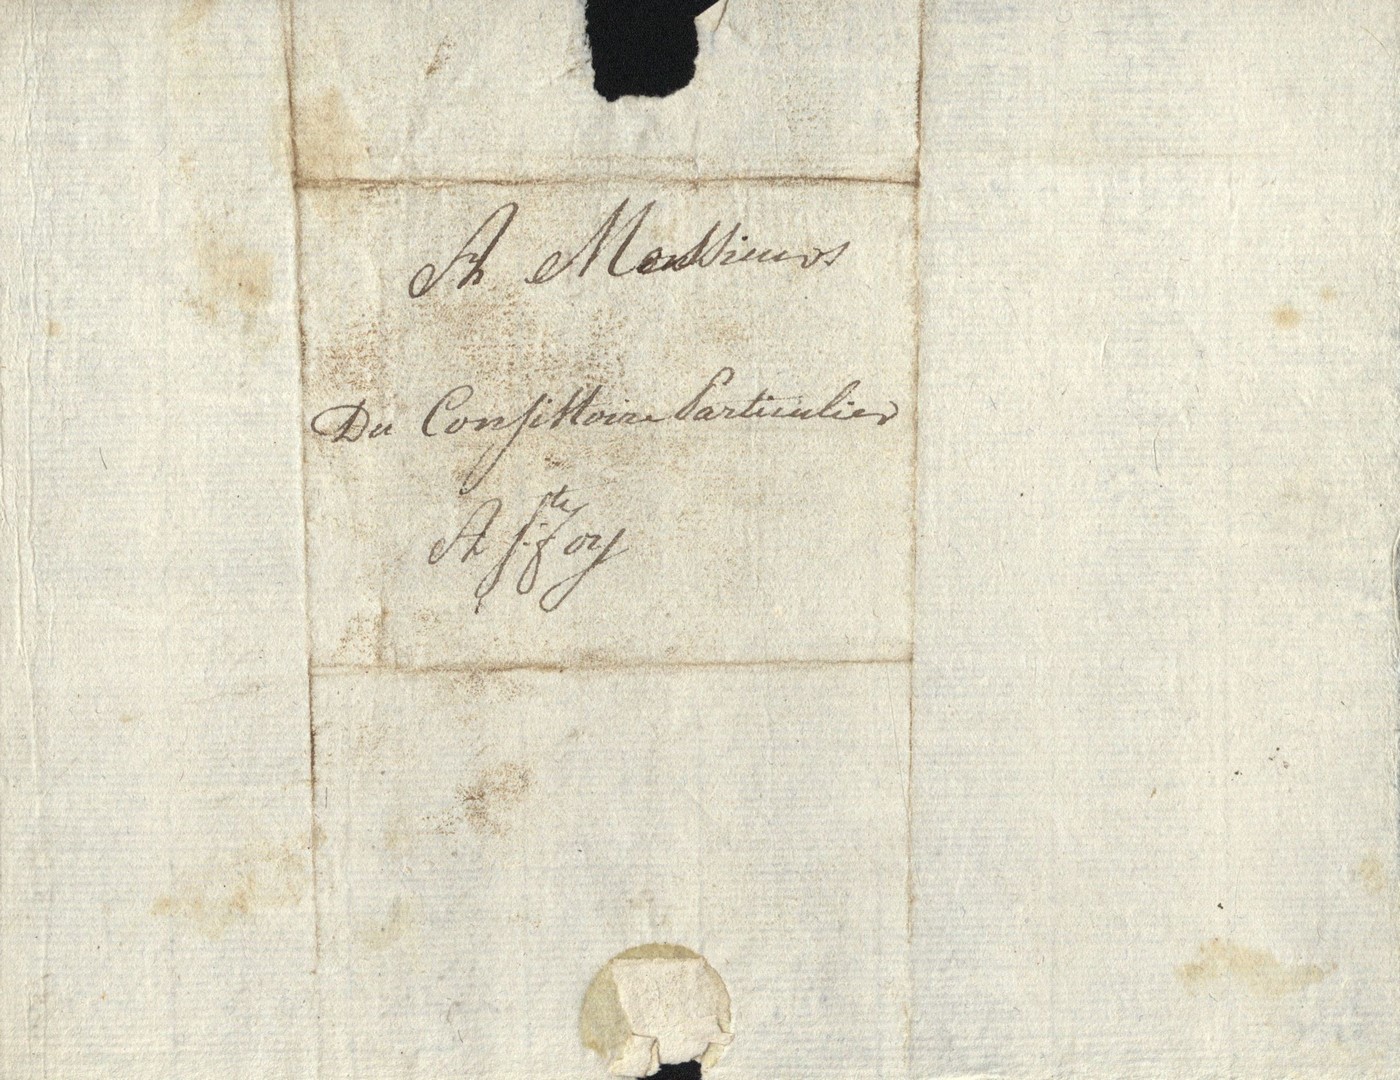 A Messieurs
Du Consistoire Particulier
A Ste Foy